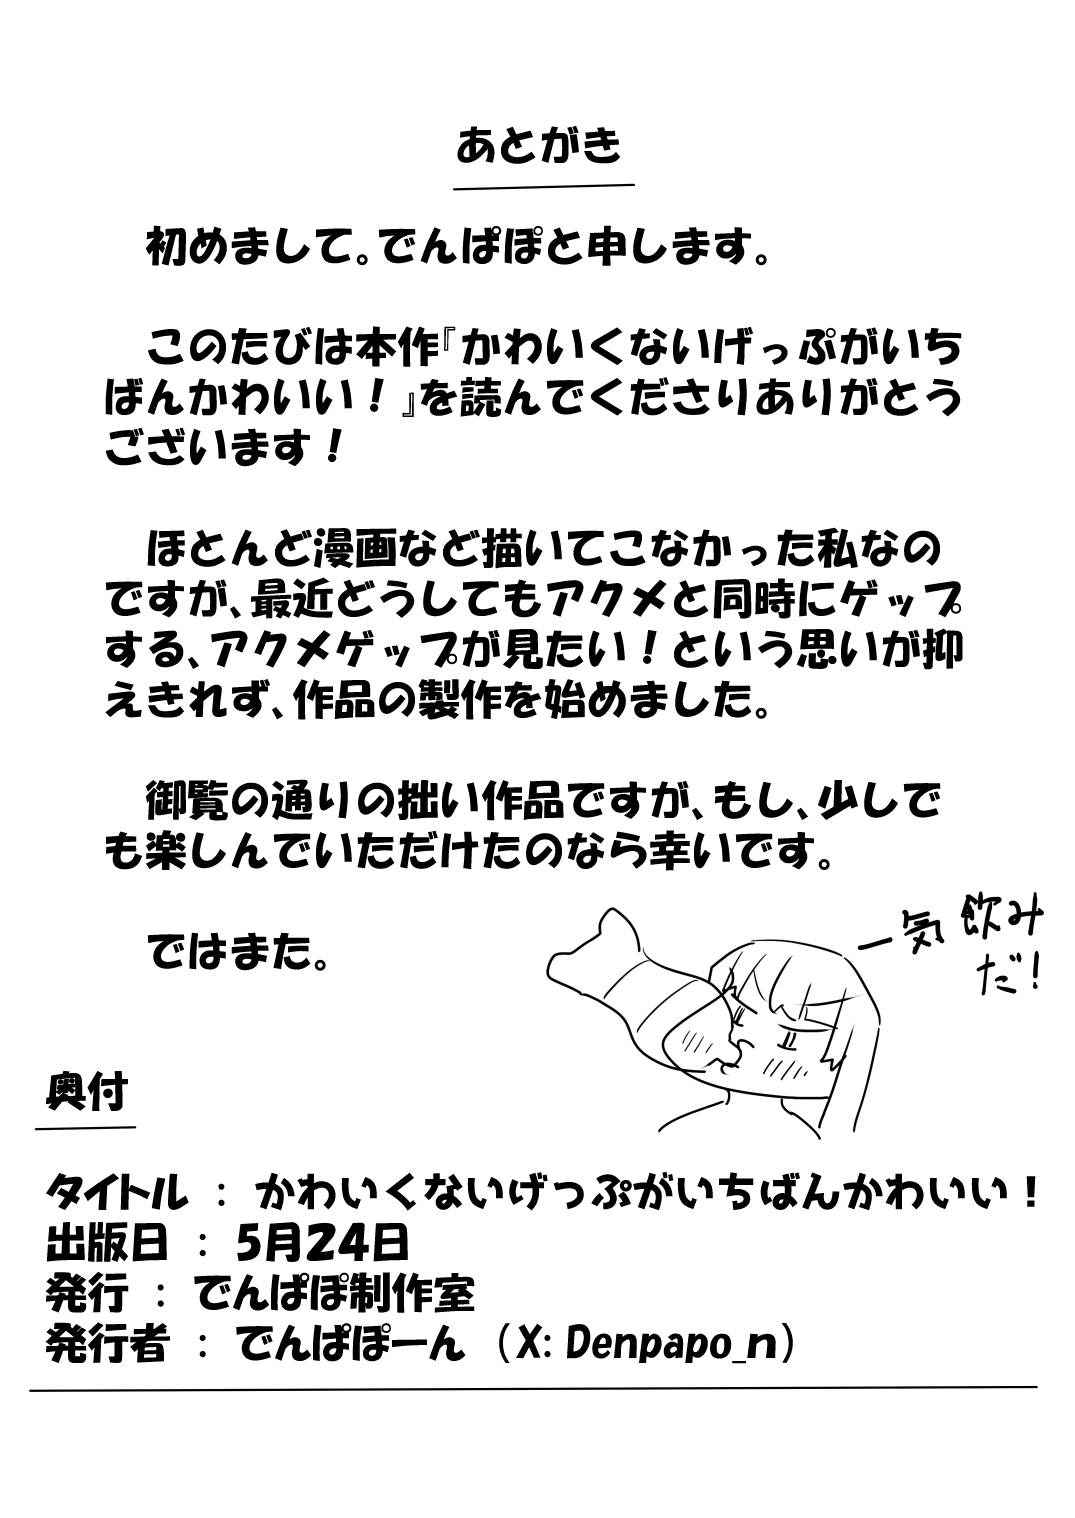 あとがき
初めまして。でんぱぽと申します。
このたびは本作『かわいくないげっぷがいち
ばんかわいい！』を読んでくださりありがとう
ございます！
ほとんど漫画など描いてこなかった私なの
ですが、最近どうしてもアクメと同時にゲップ
する、アクメゲップが見たい！という思いが抑
えきれず、作品の製作を始めました。
御覧の通りの拙い作品ですが、もし、少しで
も楽しんでいただけたのなら幸いです。
ではまた。
一気飲み
だ！
奥付
タイトル ： かわいくないげっぷがいちばんかわいい！
出版日 ： 5月24日
発行 ： でんぱぽ制作室
発行者 ： でんぱぽーん （X: Denpapo_n）